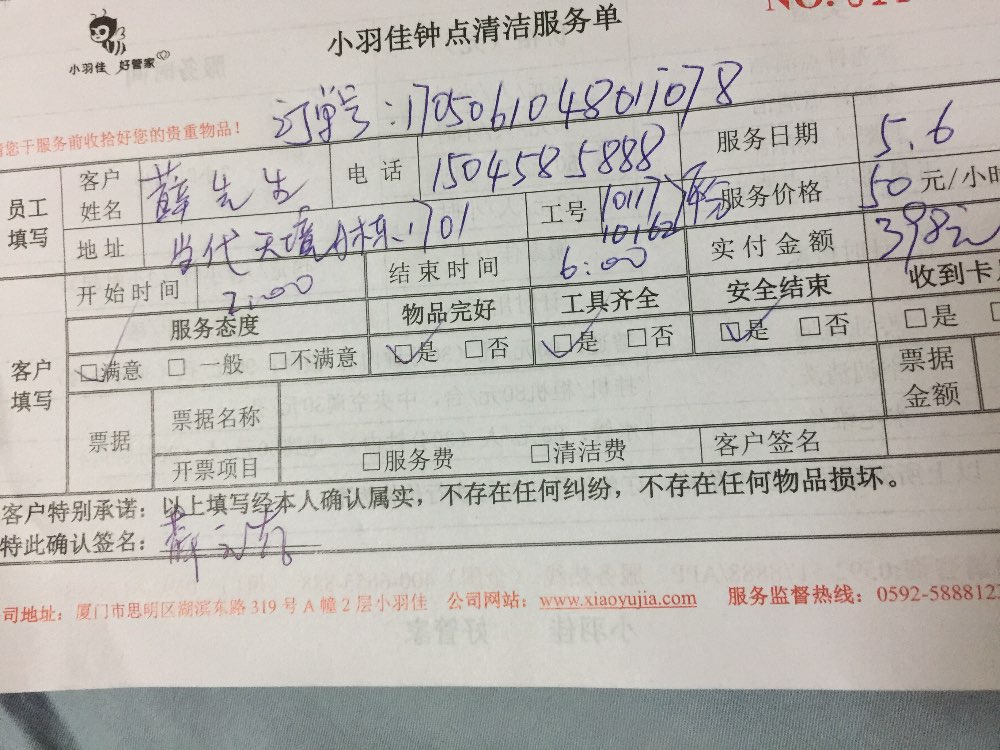 小羽佳 好管家
小羽佳钟点清洁服务单
NO.
订单号:170506104801078
请您于服务前收拾好您的贵重物品!
员工填写
客户姓名 薛先生 电话 15045858888 服务日期 5.6
地址 当代天境 栋1701 工号 10117 10162 服务价格 50元/小时
开始时间 2:00 结束时间 6:00 实付金额 398元
客户填写
服务态度 物品完好 工具齐全 安全结束 收到卡
☑满意 □一般 □不满意 ☑是 □否 ☑是 □否 ☑是 □否 □是
票据 票据名称 票据金额
开票项目 □服务费 □清洁费 客户签名
客户特别承诺:以上填写经本人确认属实,不存在任何纠纷,不存在任何物品损坏。
特此确认签名:薛
司地址:厦门市思明区湖滨东路319号A幢2层小羽佳 公司网站:www.xiaoyujia.com 服务监督热线:0592-5888122